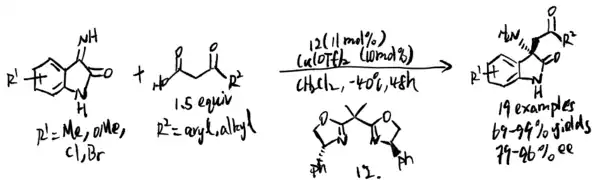 NH
R¹
O
N
H
R¹ = Me, OMe,
Cl, Br
+
O O
HO R²
1.5 equiv
R² = aryl, alkyl
12 (11 mol%)
Cu(OTf)2 (10 mol%)
CH2Cl2, -40°C, 48h
O O
N N
Ph Ph
12.
H2N O
R²
R¹ O
N
H
19 examples
69-99% yields
79-96% ee